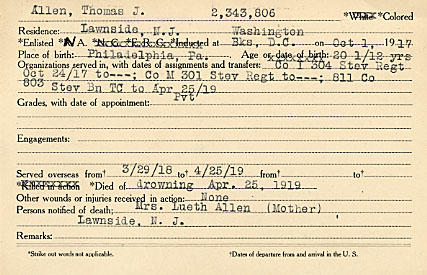 Allen, Thomas J. 2,343,806 *White *Colored
Residence: Lawnside, N.J. Washington
*Enlisted *N.A. *N.G. *E.R.C. *Inducted at Bks, D.C. on Oct 1, 1917
Place of birth: Philadelphia, Pa. Age or date of birth: 20 1/12 yrs
Organizations served in, with dates of assignments and transfers: Co I 304 Stev Regt
Oct 24/17 to---; Co M 301 Stev Regt to---; 811 Co
803 Stev Bn TC to Apr 25/19
Grades, with date of appointment: Pvt
Engagements:
Served overseas from† 3/29/18 to† 4/25/19 from† to†
*Killed in action *Died of drowning Apr. 25, 1919
Other wounds or injuries received in action: None
Persons notified of death: Mrs. Lueth Allen (Mother)
Lawnside, N. J.
Remarks:
*Strike out words not applicable. †Dates of departure from and arrival in the U. S.